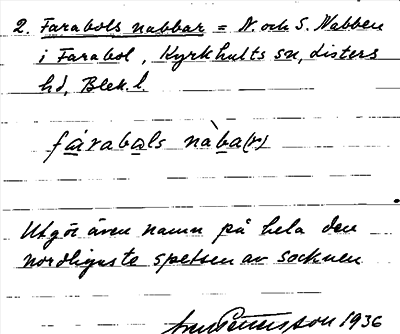 2. Farabols nabbar = N. och S. Nabben
i Farabol, Kyrkhults sn, Listers
hd, Blek. l.
fárabals nàba(r)
Utgör även namn på hela den
nordligaste spetsen av socknen
Pettersson 1936